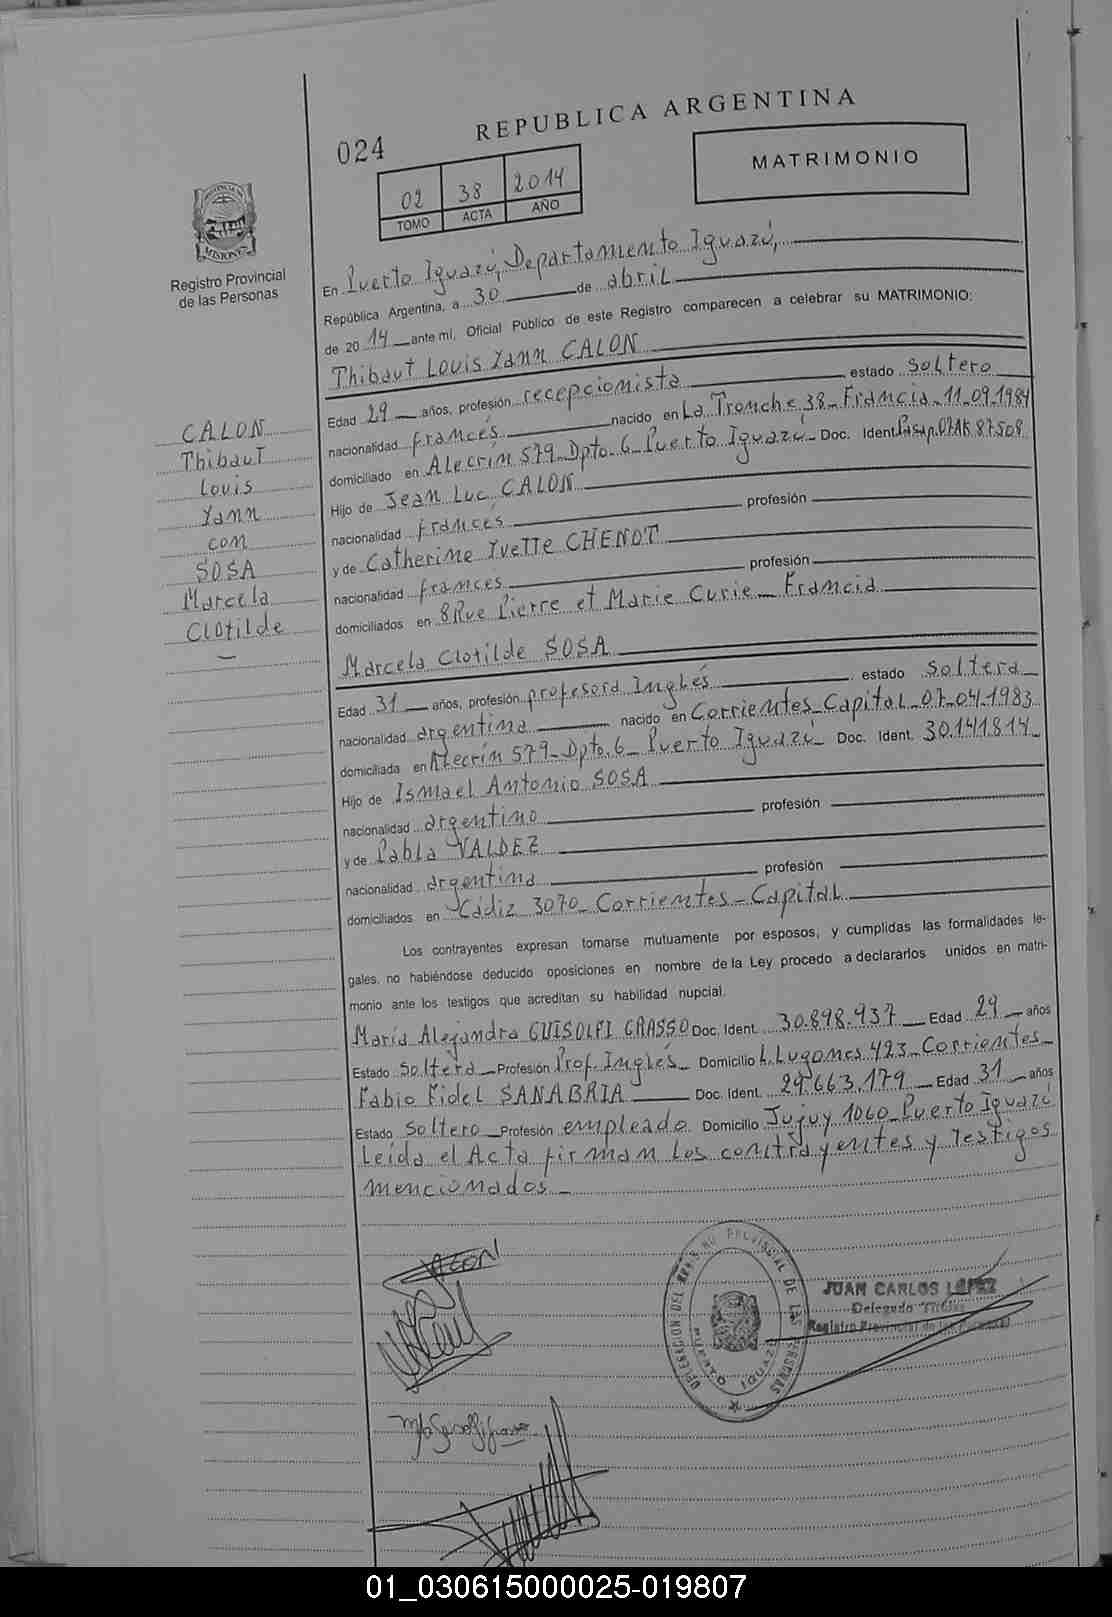 REPUBLICA ARGENTINA
024
02 38 2014
TOMO ACTA AÑO
MATRIMONIO
PROVINCIA DE
MISIONES
Registro Provincial
de las Personas
En Puerto Iguazú, Departamento Iguazú,
República Argentina, a 30 de abril
de 2014 ante mí, Oficial Público de este Registro comparecen a celebrar su MATRIMONIO:
Thibaut Louis Yann CALON
Edad 29 años, profesión recepcionista estado soltero
nacionalidad francés nacido en La Tronche 38 - Francia - 11-09-1984
domiciliado en Alecrín 579 - Dpto. 6 - Puerto Iguazú - Doc. Ident. Pasap. 07AK87508
Hijo de Jean Luc CALON
nacionalidad francés profesión
y de Catherine Yvette CHENOT
nacionalidad frances profesión
domiciliados en 8 Rue Pierre et Marie Curie - Francia
Marcela Clotilde SOSA
Edad 31 años, profesión profesora Inglés estado soltera
nacionalidad argentina nacido en Corrientes - Capital - 07-04-1983
domiciliada en Alecrín 579 - Dpto. 6 - Puerto Iguazú - Doc. Ident. 30.141.814
Hijo de Ismael Antonio SOSA
nacionalidad argentino profesión
y de Pabla VALDEZ
nacionalidad argentina profesión
domiciliados en Cádiz 3070 - Corrientes - Capital
Los contrayentes expresan tomarse mutuamente por esposos, y cumplidas las formalidades le-
gales, no habiéndose deducido oposiciones en nombre de la Ley procedo a declararlos unidos en matri-
monio ante los testigos que acreditan su habilidad nupcial.
María Alejandra GUISOLFI GRASSO Doc. Ident. 30.898.937 Edad 29 años
Estado soltera Profesión Prof. Inglés Domicilio L. Lugones 423 - Corrientes -
Fabio Fidel SANABRIA Doc. Ident. 29.663.179 Edad 31 años
Estado soltero Profesión empleado Domicilio Jujuy 1060 - Puerto Iguazú
Leída el Acta firman los contrayentes y testigos
mencionados -
CALON
Thibaut
Louis
Yann
con
SOSA
Marcela
Clotilde
DELEGACION DEL REGISTRO PROVINCIAL DE LAS PERSONAS
PUERTO IGUAZU
JUAN CARLOS LOPEZ
Delegado Titular
Registro Provincial de las Personas
01_030615000025-019807